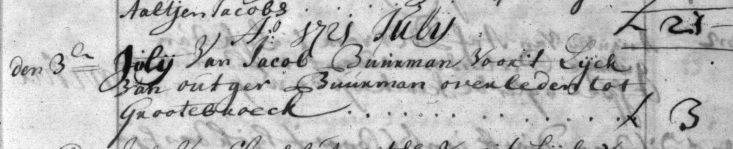 Aaltjen Jacobs
A:o 1721 July
£ 21
den 3de July Van Jacob Buurman Voor't Lyck
Van outger Buurman overleden tot
Grootebroeck . . . . . . . . . . . . £ 3